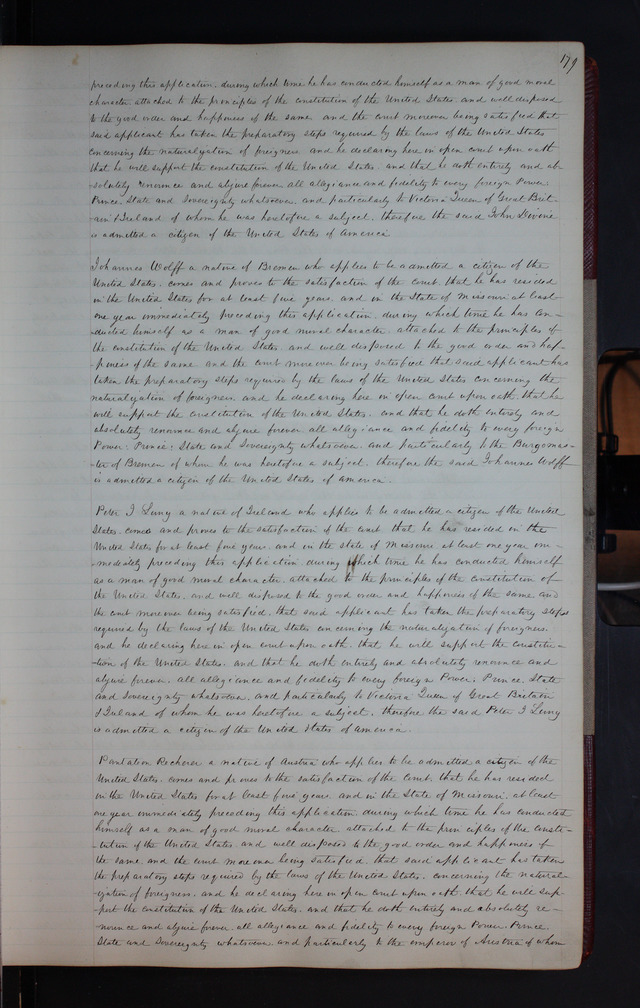 179
preceding this application, during which time he has conducted himself as a man of good moral
character attached to the principles of the constitution of the United States and well disposed
to the good order and happiness of the same and the court moreover being satisfied that
said applicant has taken the preparatory steps required by the laws of the United States
concerning the naturalization of foreigners and he declaring here in open court upon oath
that he will support the constitution of the United States, and that he doth entirely and ab-
solutely renounce and abjure forever all allegiance and fidelity to every foreign Power,
Prince, State and Sovereignty whatsoever, and particularly to Victoria Queen of Great Brit-
ain & Ireland of whom he was heretofore a subject, therefore the said John Devine
is admitted a citizen of the United States of America
Johannes Wolff a native of Bremen who applies to be admitted a citizen of the
United States, comes and proves to the satisfaction of the court, that he has resided
in the United States for at least five years, and in the State of Missouri at least
one year immediately preceding this application, during which time he has con-
ducted himself as a man of good moral character attached to the principles of
the constitution of the United States and well disposed to the good order and hap-
piness of the same and the court moreover being satisfied that said applicant has
taken the preparatory steps required by the laws of the United States concerning the
naturalization of foreigners, and he declaring here in open court upon oath, that he
will support the constitution of the United States, and that he doth entirely and
absolutely renounce and abjure forever all allegiance and fidelity to every foreign
Power, Prince, State and Sovereignty whatsoever, and particularly to the Burgomas-
-ter of Bremen of whom he was heretofore a subject, therefore the said Johannes Wolff
is admitted a citizen of the United States of America.
Peter I a native of Ireland who applies to be admitted a citizen of the United
States, comes and proves to the satisfaction of the court that he has resided in the
United States for at least five years, and in the State of Missouri at least one year im-
-mediately preceding this application during which time he has conducted himself
as a man of good moral character, attached to the principles of the constitution of
the United States, and well disposed to the good order and happiness of the same and
the court moreover being satisfied, that said applicant has taken the preparatory steps
required by the laws of the United States concerning the naturalization of foreigners,
and he declaring here in open court upon oath, that he will support the constitu-
-tion of the United States, and that he doth entirely and absolutely renounce and
abjure forever, all allegiance and fidelity to every foreign Power, Prince, State
and Sovereignty whatsoever, and particularly to Victoria Queen of Great Britain
& Ireland of whom he was heretofore a subject, therefore the said Peter I
is admitted a citizen of the United States of America.
Pantaleon a native of Austria who applies to be admitted a citizen of the
United States, comes and proves to the satisfaction of the Court, that he has resided
in the United States for at least five years, and in the State of Missouri, at least
one year immediately preceding this application, during which time he has conducted
himself as a man of good moral character, attached to the principles of the consti-
-tution of the United States, and well disposed to the good order and happiness of
the same, and the court moreover being satisfied, that said applicant has taken
the preparatory steps required by the laws of the United States, concerning the natural-
-ization of foreigners, and he declaring here in open court upon oath, that he will sup-
-port the constitution of the United States, and that he doth entirely and absolutely re-
-nounce and abjure forever, all allegiance and fidelity to every foreign Power, Prince,
State and Sovereignty whatsoever, and particularly to the emperor of Austria of whom